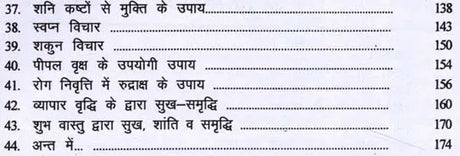 37. शनि कष्टों से मुक्ति के उपाय.......................................................... 138
38. स्वप्न विचार .......................................................................... 143
39. शकुन विचार .......................................................................... 150
40. पीपल वृक्ष के उपयोगी उपाय ...................................................... 154
41. रोग निवृत्ति में रुद्राक्ष के उपाय ................................................... 156
42. व्यापार वृद्धि के द्वारा सुख–समृद्धि ................................................ 160
43. शुभ वास्तु द्वारा सुख, शांति व समृद्धि ............................................. 170
44. अन्त में... ............................................................................. 174